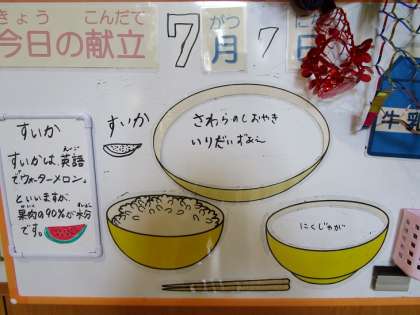 きょう こんだて
今日の献立
7 がつ
月 7 にち
日
すいか
さわらのしおやき
いりだいずあえ
にくじゃが
牛乳
すいか
すいかは、英語 えいご
でウォーターメロン。
といいますが、
果肉の90%が水分
です。